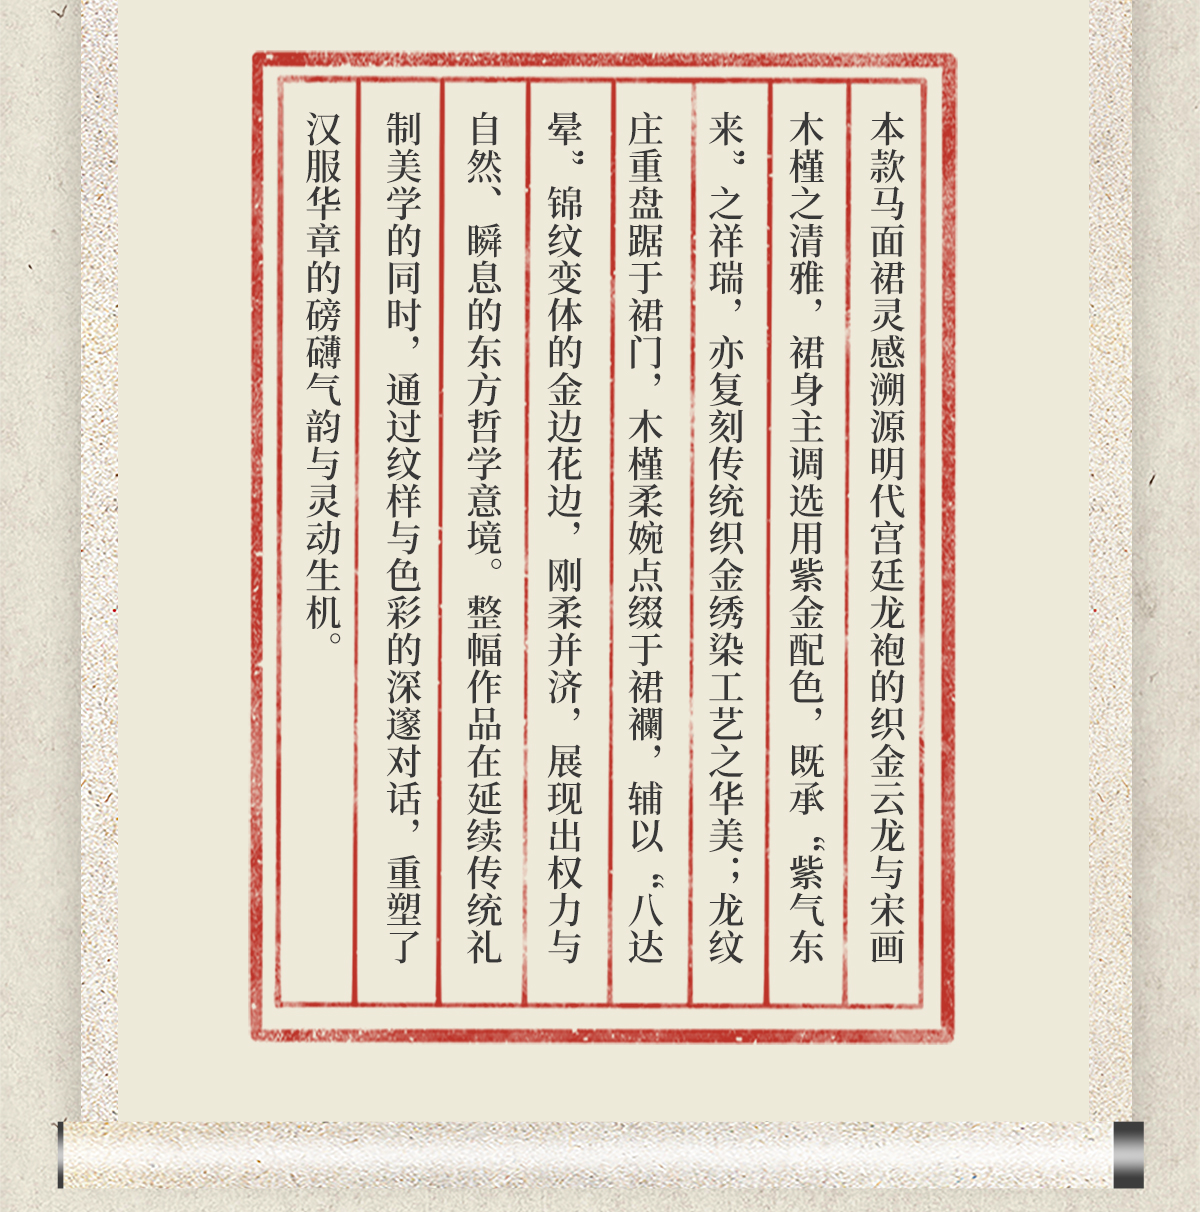 本款马面裙灵感溯源明代宫廷龙袍的织金云龙与宋画
木槿之清雅，裙身主调选用紫金配色，既承“紫气东
来”之祥瑞，亦复刻传统织金绣染工艺之华美；龙纹
庄重盘踞于裙门，木槿柔婉点缀于裙襕，辅以“八达
晕”锦纹变体的金边花边，刚柔并济，展现出权力与
自然、瞬息的东方哲学意境。整幅作品在延续传统礼
制美学的同时，通过纹样与色彩的深邃对话，重塑了
汉服华章的磅礴气韵与灵动生机。